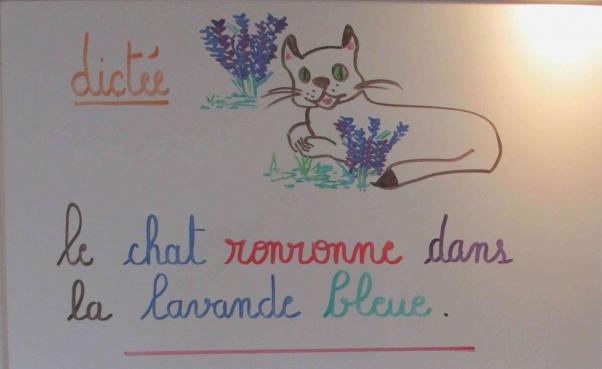 dictée
le chat ronronne dans
la lavande bleue.